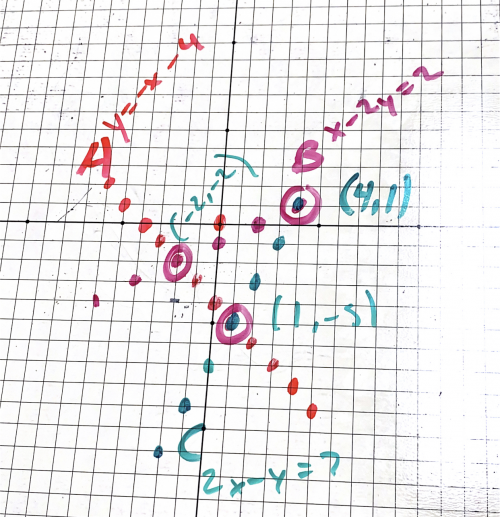 y=-x-4
A
x-2y=2
B
(-2,-2)
(4,1)
(1,-5)
C
2x-y=7